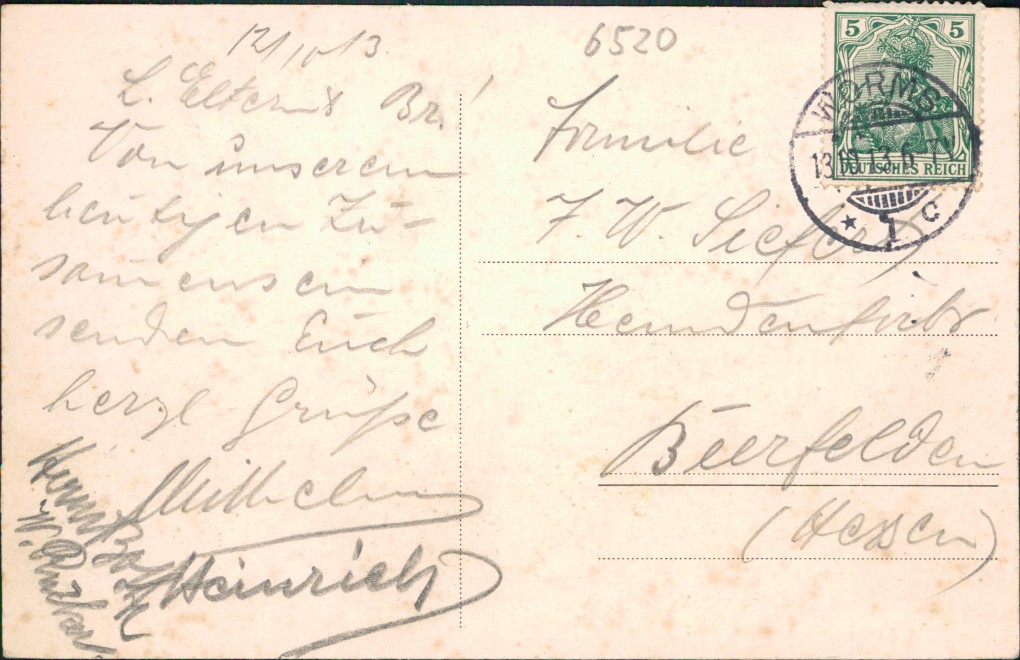 12/10 13.
6520
L. Eltern & Br.!
Von unserem
heutigen Zu-
samensein
senden Euch
herzl Grüße
Wilhelm
Heinrich
W.
Familie
F. W. Siefert
Beerfelden
(Hessen)
5 5
DEUTSCHES REICH
WORMS
13.10.13.6-7N
* 1 c